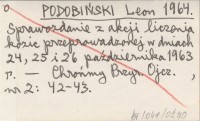 PODOBIŃSKI Leon 1964.
Sprawozdanie z akcji liczenia
kozic przeprowadzonej w dniach
24, 25 i 26 października 1963
r. — Chrońmy Przyr. Ojcz.,
nr 2: 42-43.